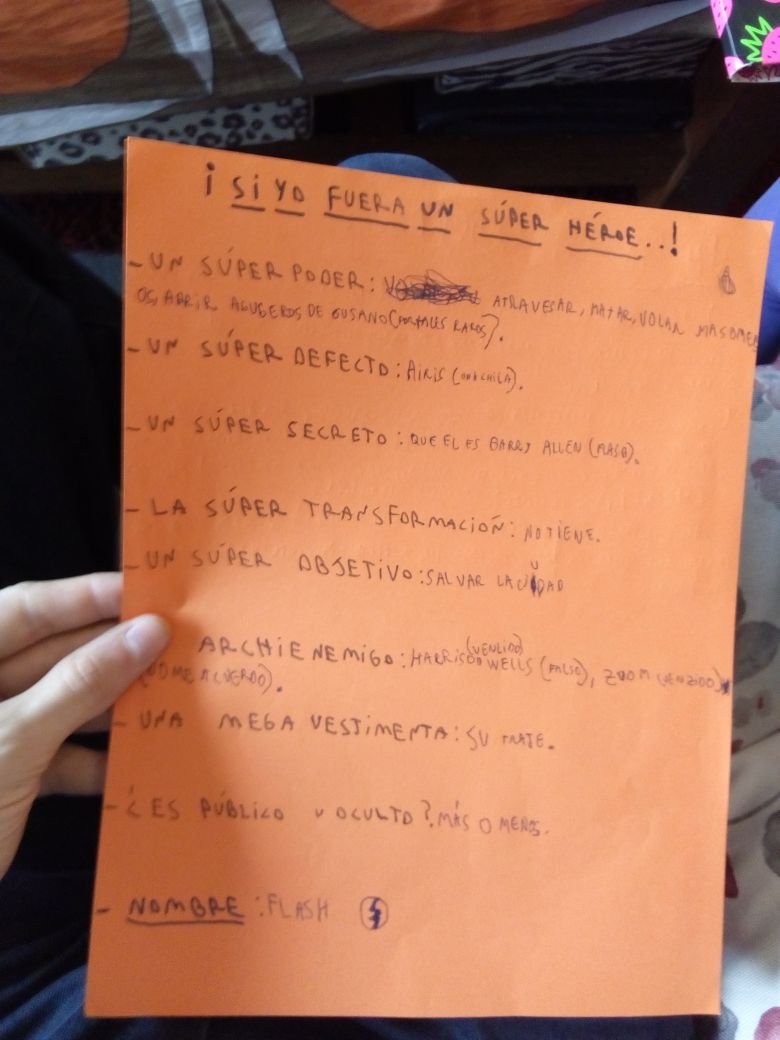 ¡SI YO FUERA UN SÚPER HÉROE..!
- UN SÚPER PODER: ATRAVESAR, MATAR, VOLAR MAS OMEN
OS, ABRIR AGUGEROS DE GUSANO (PORTALES RAROS).
- UN SÚPER DEFECTO: AIRIS (UNA CHICA).
- UN SÚPER SECRETO: QUE EL ES BARRY ALLEN (FLASH).
- LA SÚPER TRANSFORMACIÓN: NO TIENE.
- UN SÚPER OBJETIVO: SALVAR LA CIUDAD
ARCHIENEMIGO: HARRISON WELLS (FALSO) (VENCIDO), ZOOM (VENZIDO) Y
(NO ME ACUERDO).
- UNA MEGA VESTIMENTA: SU TRAJE.
- ¿ES PÚBLICO U OCULTO? MÁS O MENOS.
- NOMBRE: FLASH